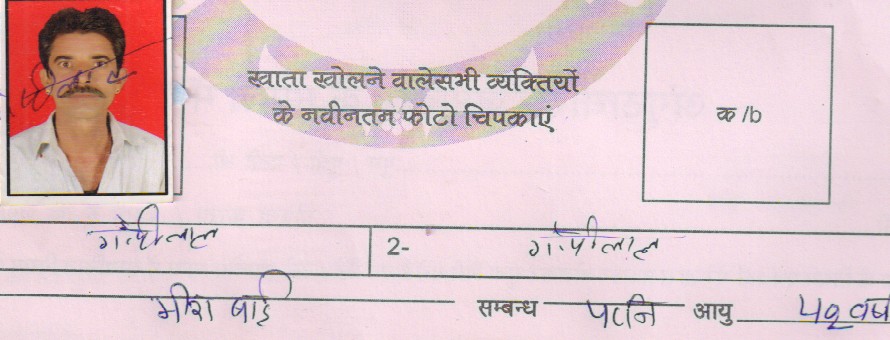 खाता खोलने वालेसभी व्यक्तियों
के नवीनतन फोटो चिपकाएं
क /b
गोपीलाल 2- गोपीलाल
मीरा बाई सम्बन्ध पत्नि आयु 42 वर्ष